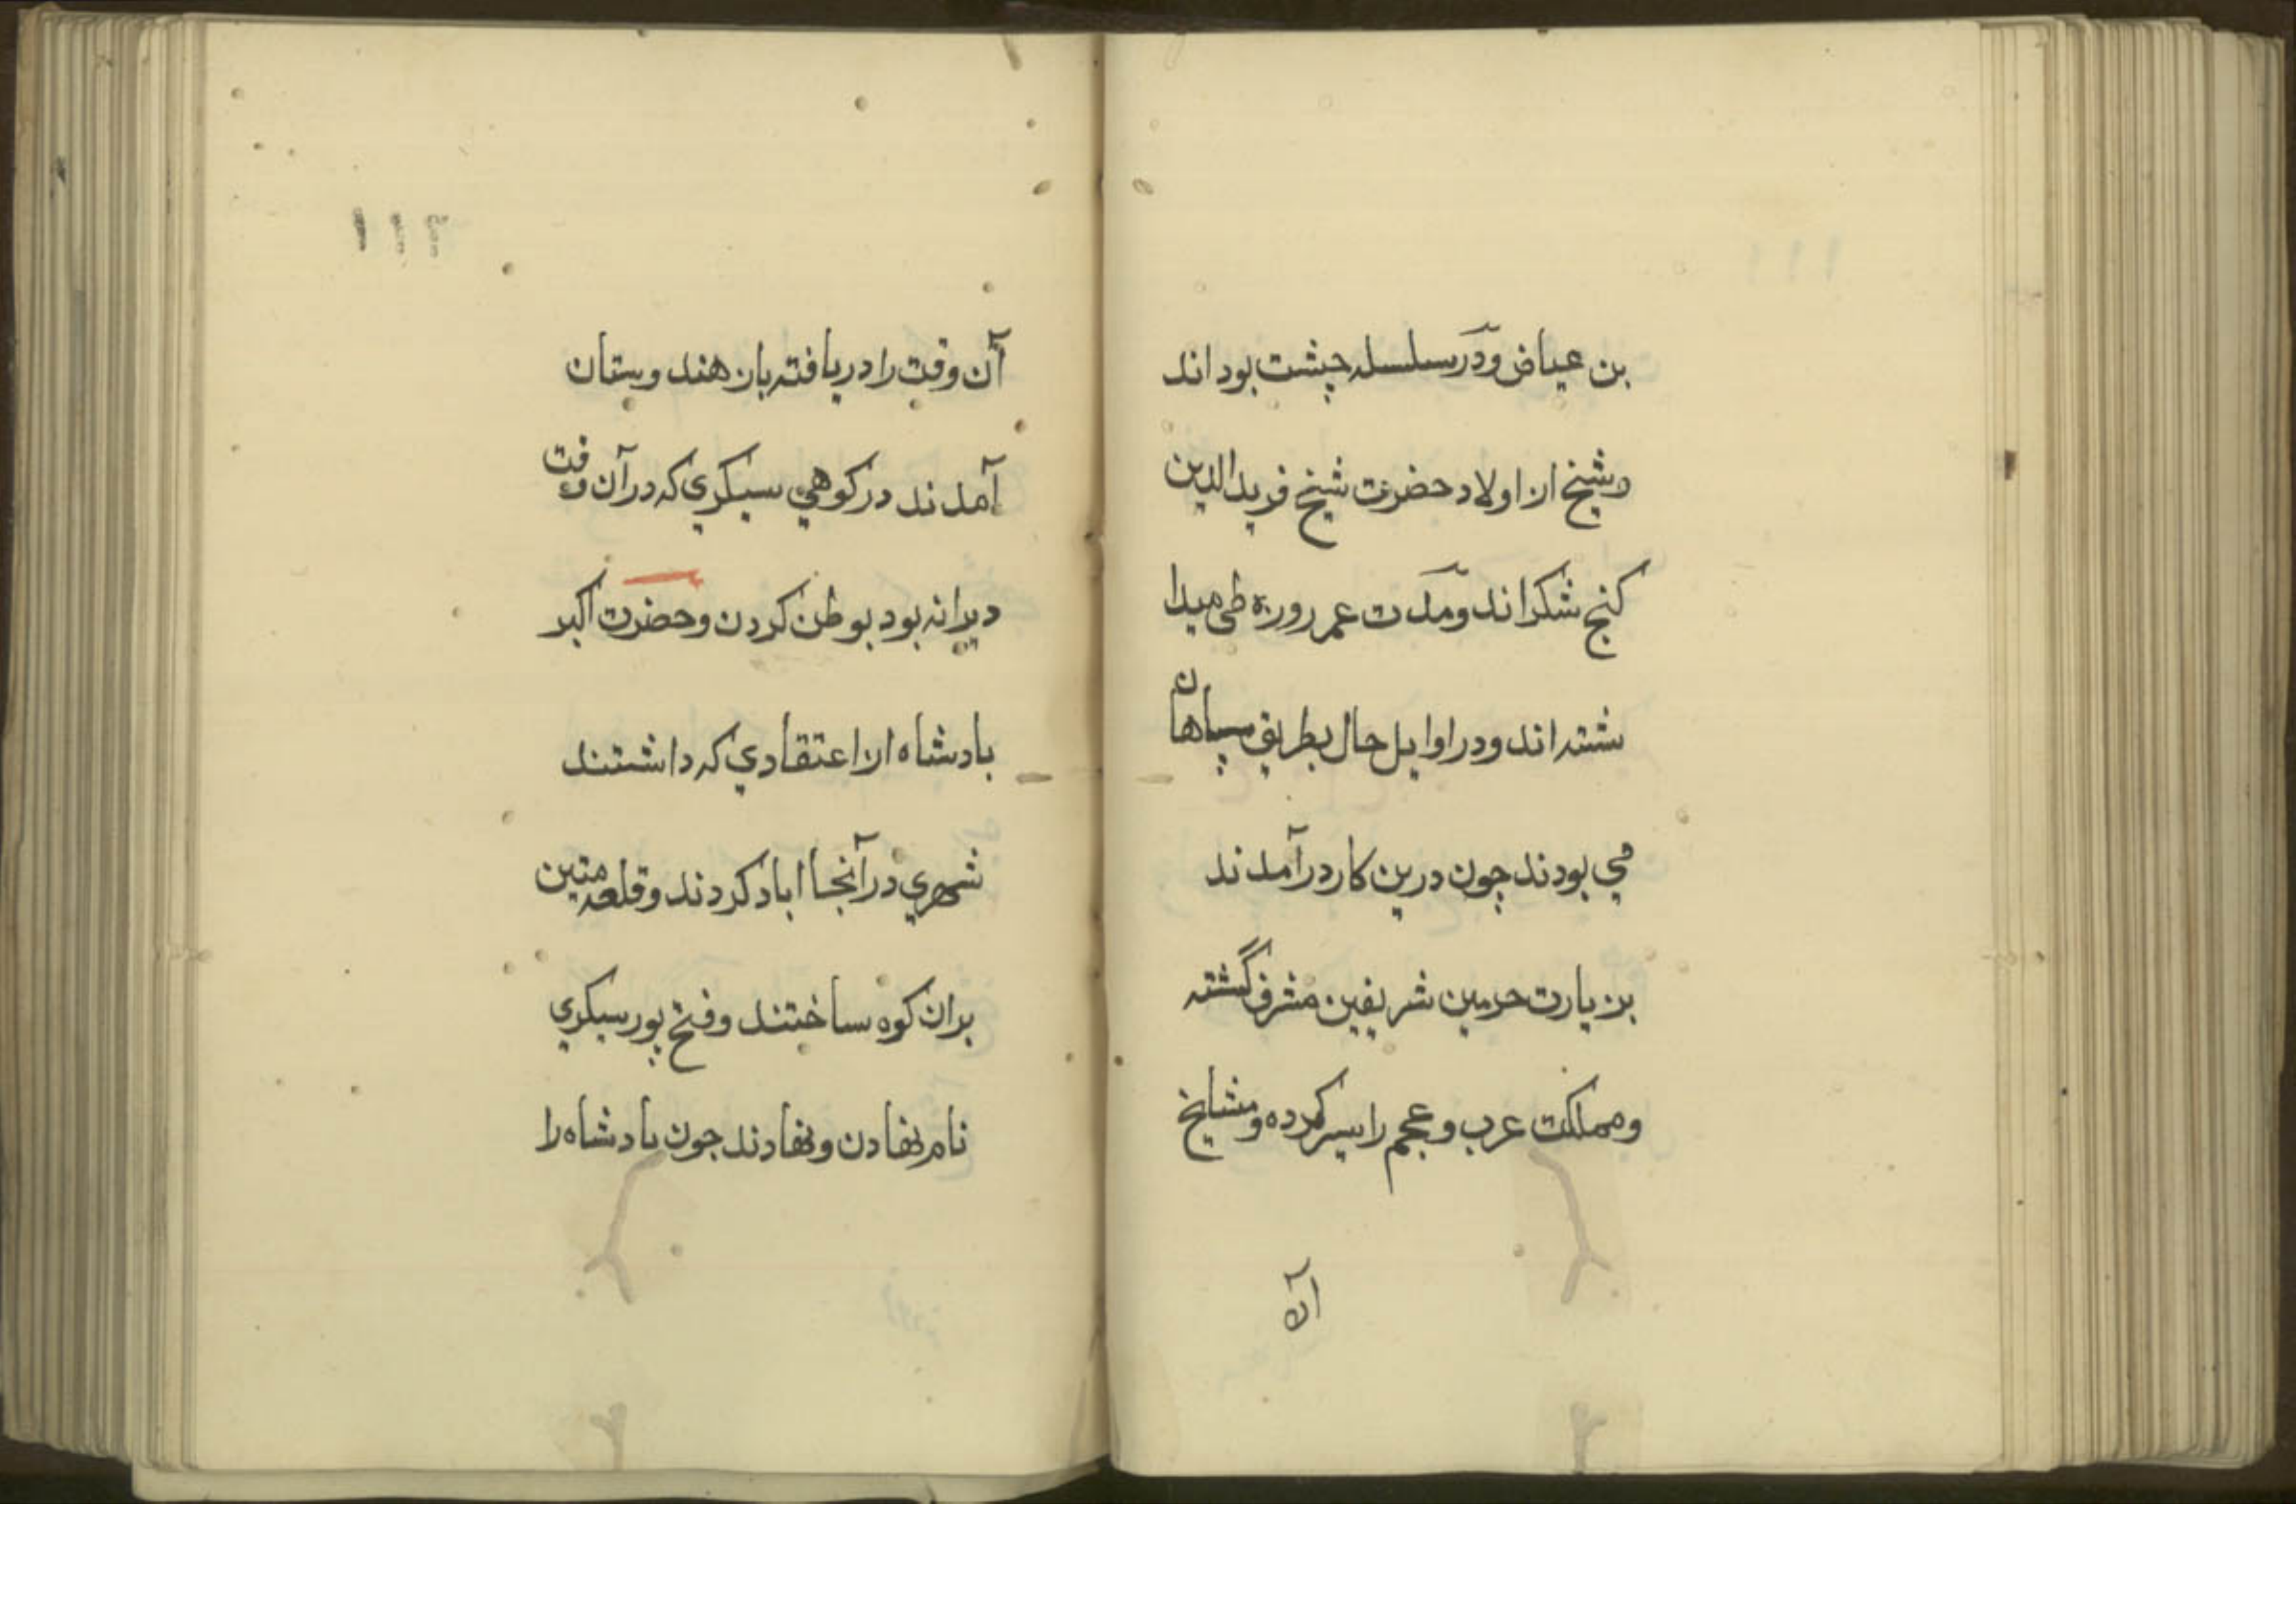 بن عیاض ودر سلسله چشت بود اند
وشیخ از اولاد حضرت شیخ فرید الدین
کنج شکر اند ومدت عمر روزه طی میدا
شته اند ودر اوایل حال بطریق سپاهان
مي بودند چون درین کار در آمدند
بزیارت حرمین شریفین مشرف گشته
ومملکت عرب وعجم را سیر کرده ومشایخ
آن
آن وقت را دریافته باز هندوستان
آمدند در کوهي سیکري که در آن وقت
ویرانه بود بوطن کردن وحضرت اکبر
بادشاه از اعتقادي که داشتند
شهري در آنجا اباد کردند وقلعه متین
بران کوه ساختند وفتح پور سیکري
نام نهادن ونهادند چون بادشاه را